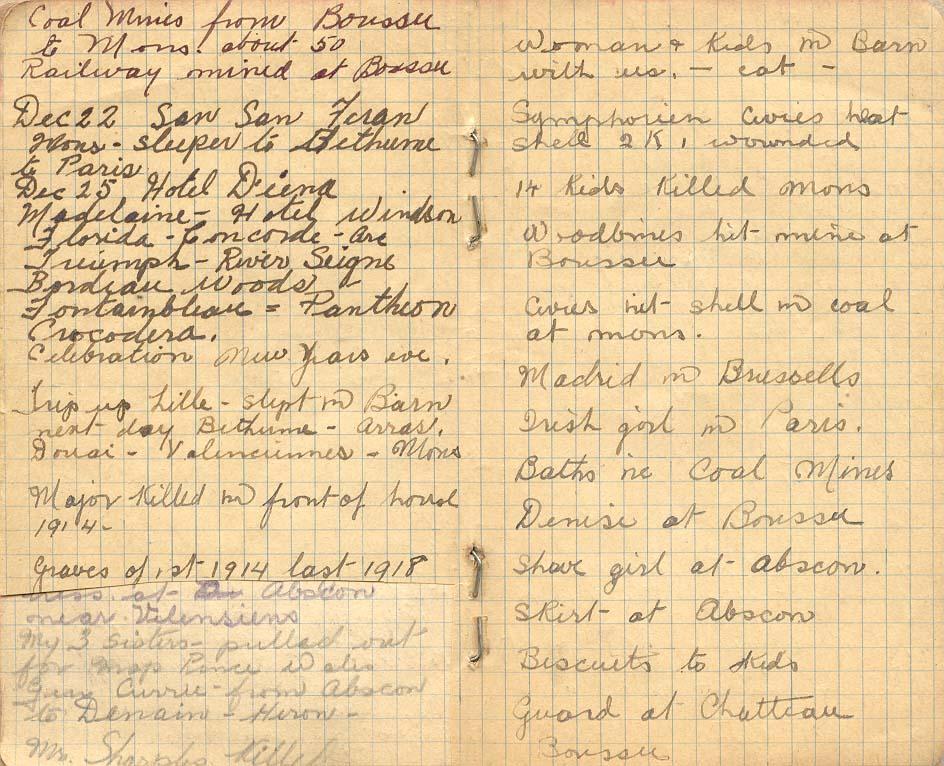 Coal Mines from Boussu
to Mons. about 50
Railway mined at Boussu
Dec 22 San San Feran
Mons - sleeper to Bethume
to Paris
Dec 25 Hotel D'iena
Madelaine - Hotel Windson
Florida - Concorde - Arc
Triumph - River Seigne
Bordeau Woods -
Fontainbleau = Pantheon
Crocodera.
Celebration New Years eve.
Trip up Lille - slept in Barn
next day Bethume - Arras.
Douai - Valenciennes - Mons
Major Killed in front of
1914 -
Graves of 1st 1914 last 1918
at Abscon
near Vilensiens
My 3 Sisters - pulled out
for Wales
Currie - from Abscon
to Denain - Heron -
Mr. Killed
Woman & Kids in Barn
with us. - eat -
Symphorien Civies
shell 2 K, wounded
14 Kids Killed Mons
Woodbines hit mine at
Boussu
Civies hit shell in coal
at mons.
Madrid in Brussells
Irish girl in Paris.
Baths in Coal Mines
Denise at Boussu
Shave girl at Abscon.
Skirt at Abscon
Biscuits to Kids
Guard at Chatteau
Boussu